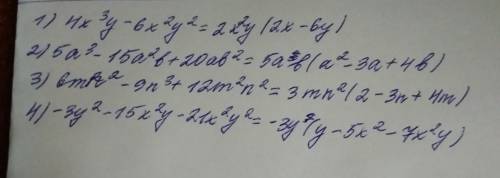 1) 4x³y - 6x²y² = 2x²y (2x - 6y)
2) 5a³ - 15a²b + 20ab² = 5a b (a² - 3a + 4b)
3) 6mn² - 9n³ + 12m²n² = 3mn² (2 - 3n + 4m)
4) -3y² - 15x²y - 21x²y² = -3y² (y - 5x² - 7x²y)